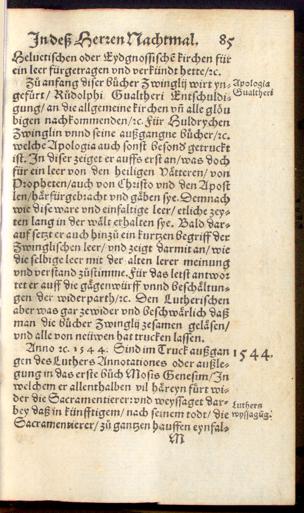 In deß Herren Nachtmal. 85
Helvetischen oder Eydgnossischē kirchen für
ein leer fürgetragen und verkündt hette/ꝛc.
Zů anfang diser bücher Zwinglij wirt yn-
gefürt/ Růdolphi Gualtheri Entschuldi-
gung/ an die allgemeine kirchen vñ alle gloͤu
bigen nachkommenden/ꝛc. Für Huldrychen
Zwinglin vnnd seine außgangne bücher/ꝛc.
welche Apologia auch sonst besond getruckt
ist. In diser zeiget er auffs erst an/was doch
für ein leer von den heiligen Vätteren/ von
Propheten/auch von Christo vnd den Apost
len/härfürgebracht vnd gäben sye. Demnach
wie dise ware vnd einfaltige leer/ etliche zey-
ten lang in der wält erhalten sye. Bald dar-
auf setzt er auch hinzů ein kurtzen begriff der
Zwinglischen leer/ vnd zeigt darmit an/ wie
die selbige leer mit der alten lerer meinung
vnd verstand zůstimme. Für das letst antwor
tet er auff die gägenwürff vnnd beschältun-
gen der widerparth/ꝛc. Den Lutherischen
aber was gar zewider vnd beschwärlich daß
man die bücher Zwinglij zesamen geläsen/
vnd alle von neüwen hat trucken lassen.
Anno ꝛc. 1544. Sind im Truck außgan
gen des Luthers Annotationes oder außle-
gung in das erste bůch Mosis Genesim/ In
welchem er allenthalben vil häreyn fürt wi-
der die Sacramentierer: vnd weyssaget dar-
bey daß in künfftigem/ nach seinem todt/ die
Sacramentierer/ zů gantzen hauffen eynfal-
M
Apologia
Gualtheri
1544.
Luthers
wyssagũg.